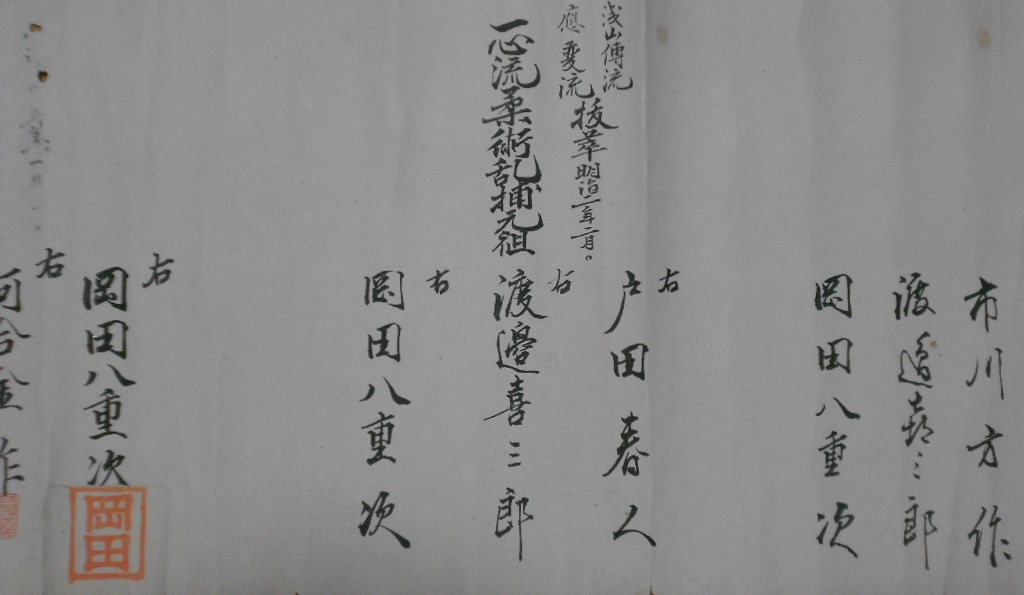 市川方作
渡邉喜三郎
岡田八重次
右
戸田春人
浅山傳流
應変流
抜萃明治二年二月。
右
一心流柔術乱捕元祖
渡邊喜三郎
右
岡田八重次
右
岡田八重次
岡田
右
河合金作